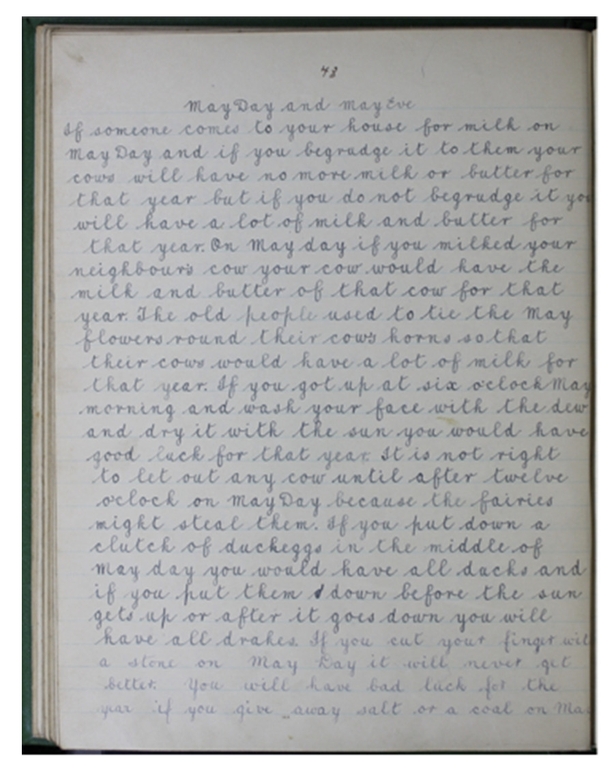 43
May Day and May Eve
If someone comes to your house for milk on
May Day and if you begrudge it to them your
cows will have no more milk or butter for
that year but if you do not begrudge it you
will have a lot of milk and butter for
that year. On May day if you milked your
neighbours cow your cow would have the
milk and butter of that cow for that
year. The old people used to tie the May
flowers round their cows horns so that
their cows would have a lot of milk for
that year. If you got up at six o'clock May
morning and wash your face with the dew
and dry it with the sun you would have
good luck for that year. It is not right
to let out any cow until after twelve
o'clock on May Day because the fairies
might steal them. If you put down a
clutch of duckeggs in the middle of
May day you would have all ducks and
if you put them down before the sun
gets up or after it goes down you will
have all drakes. If you cut your finger wit
a stone on May Day it will never get
better. You will have bad luck for the
year if you give away salt or a coal on Ma